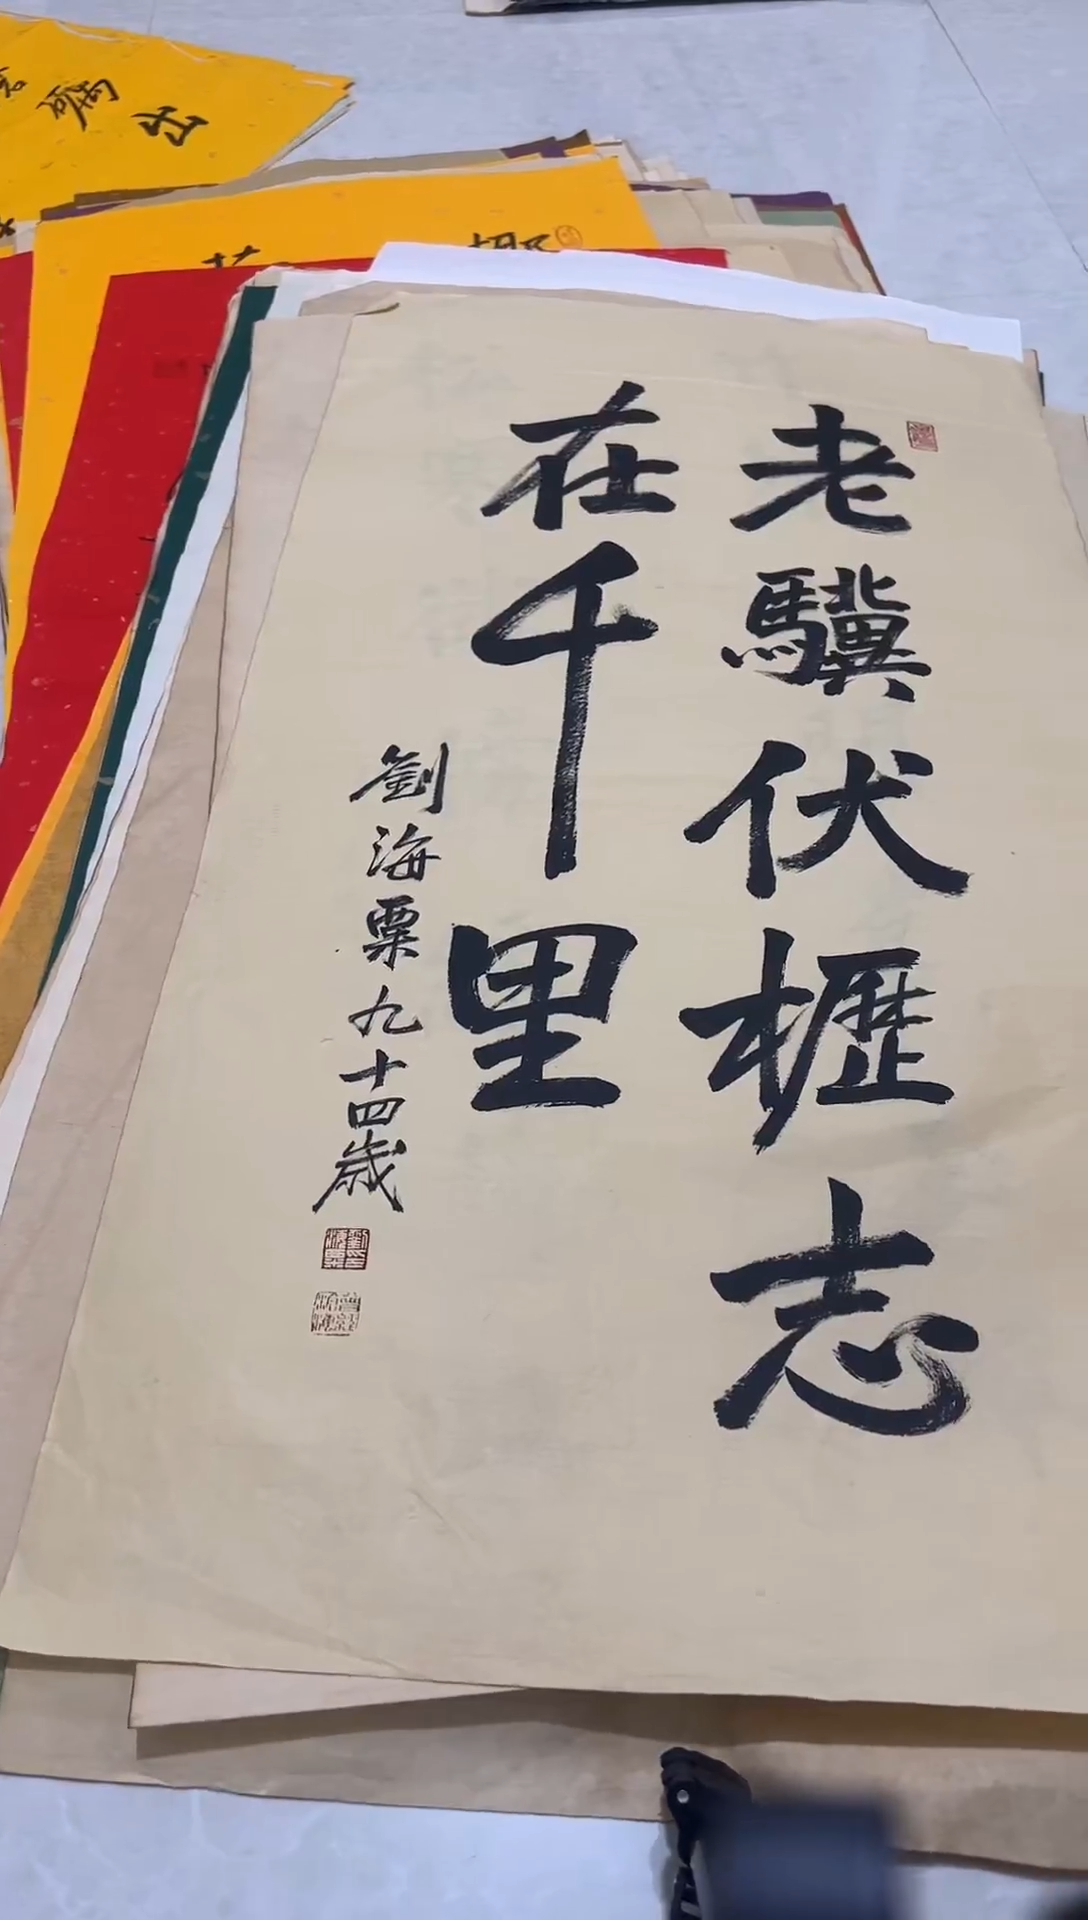 老驥伏櫪志
在千里
劉海粟九十四歲
出
礪